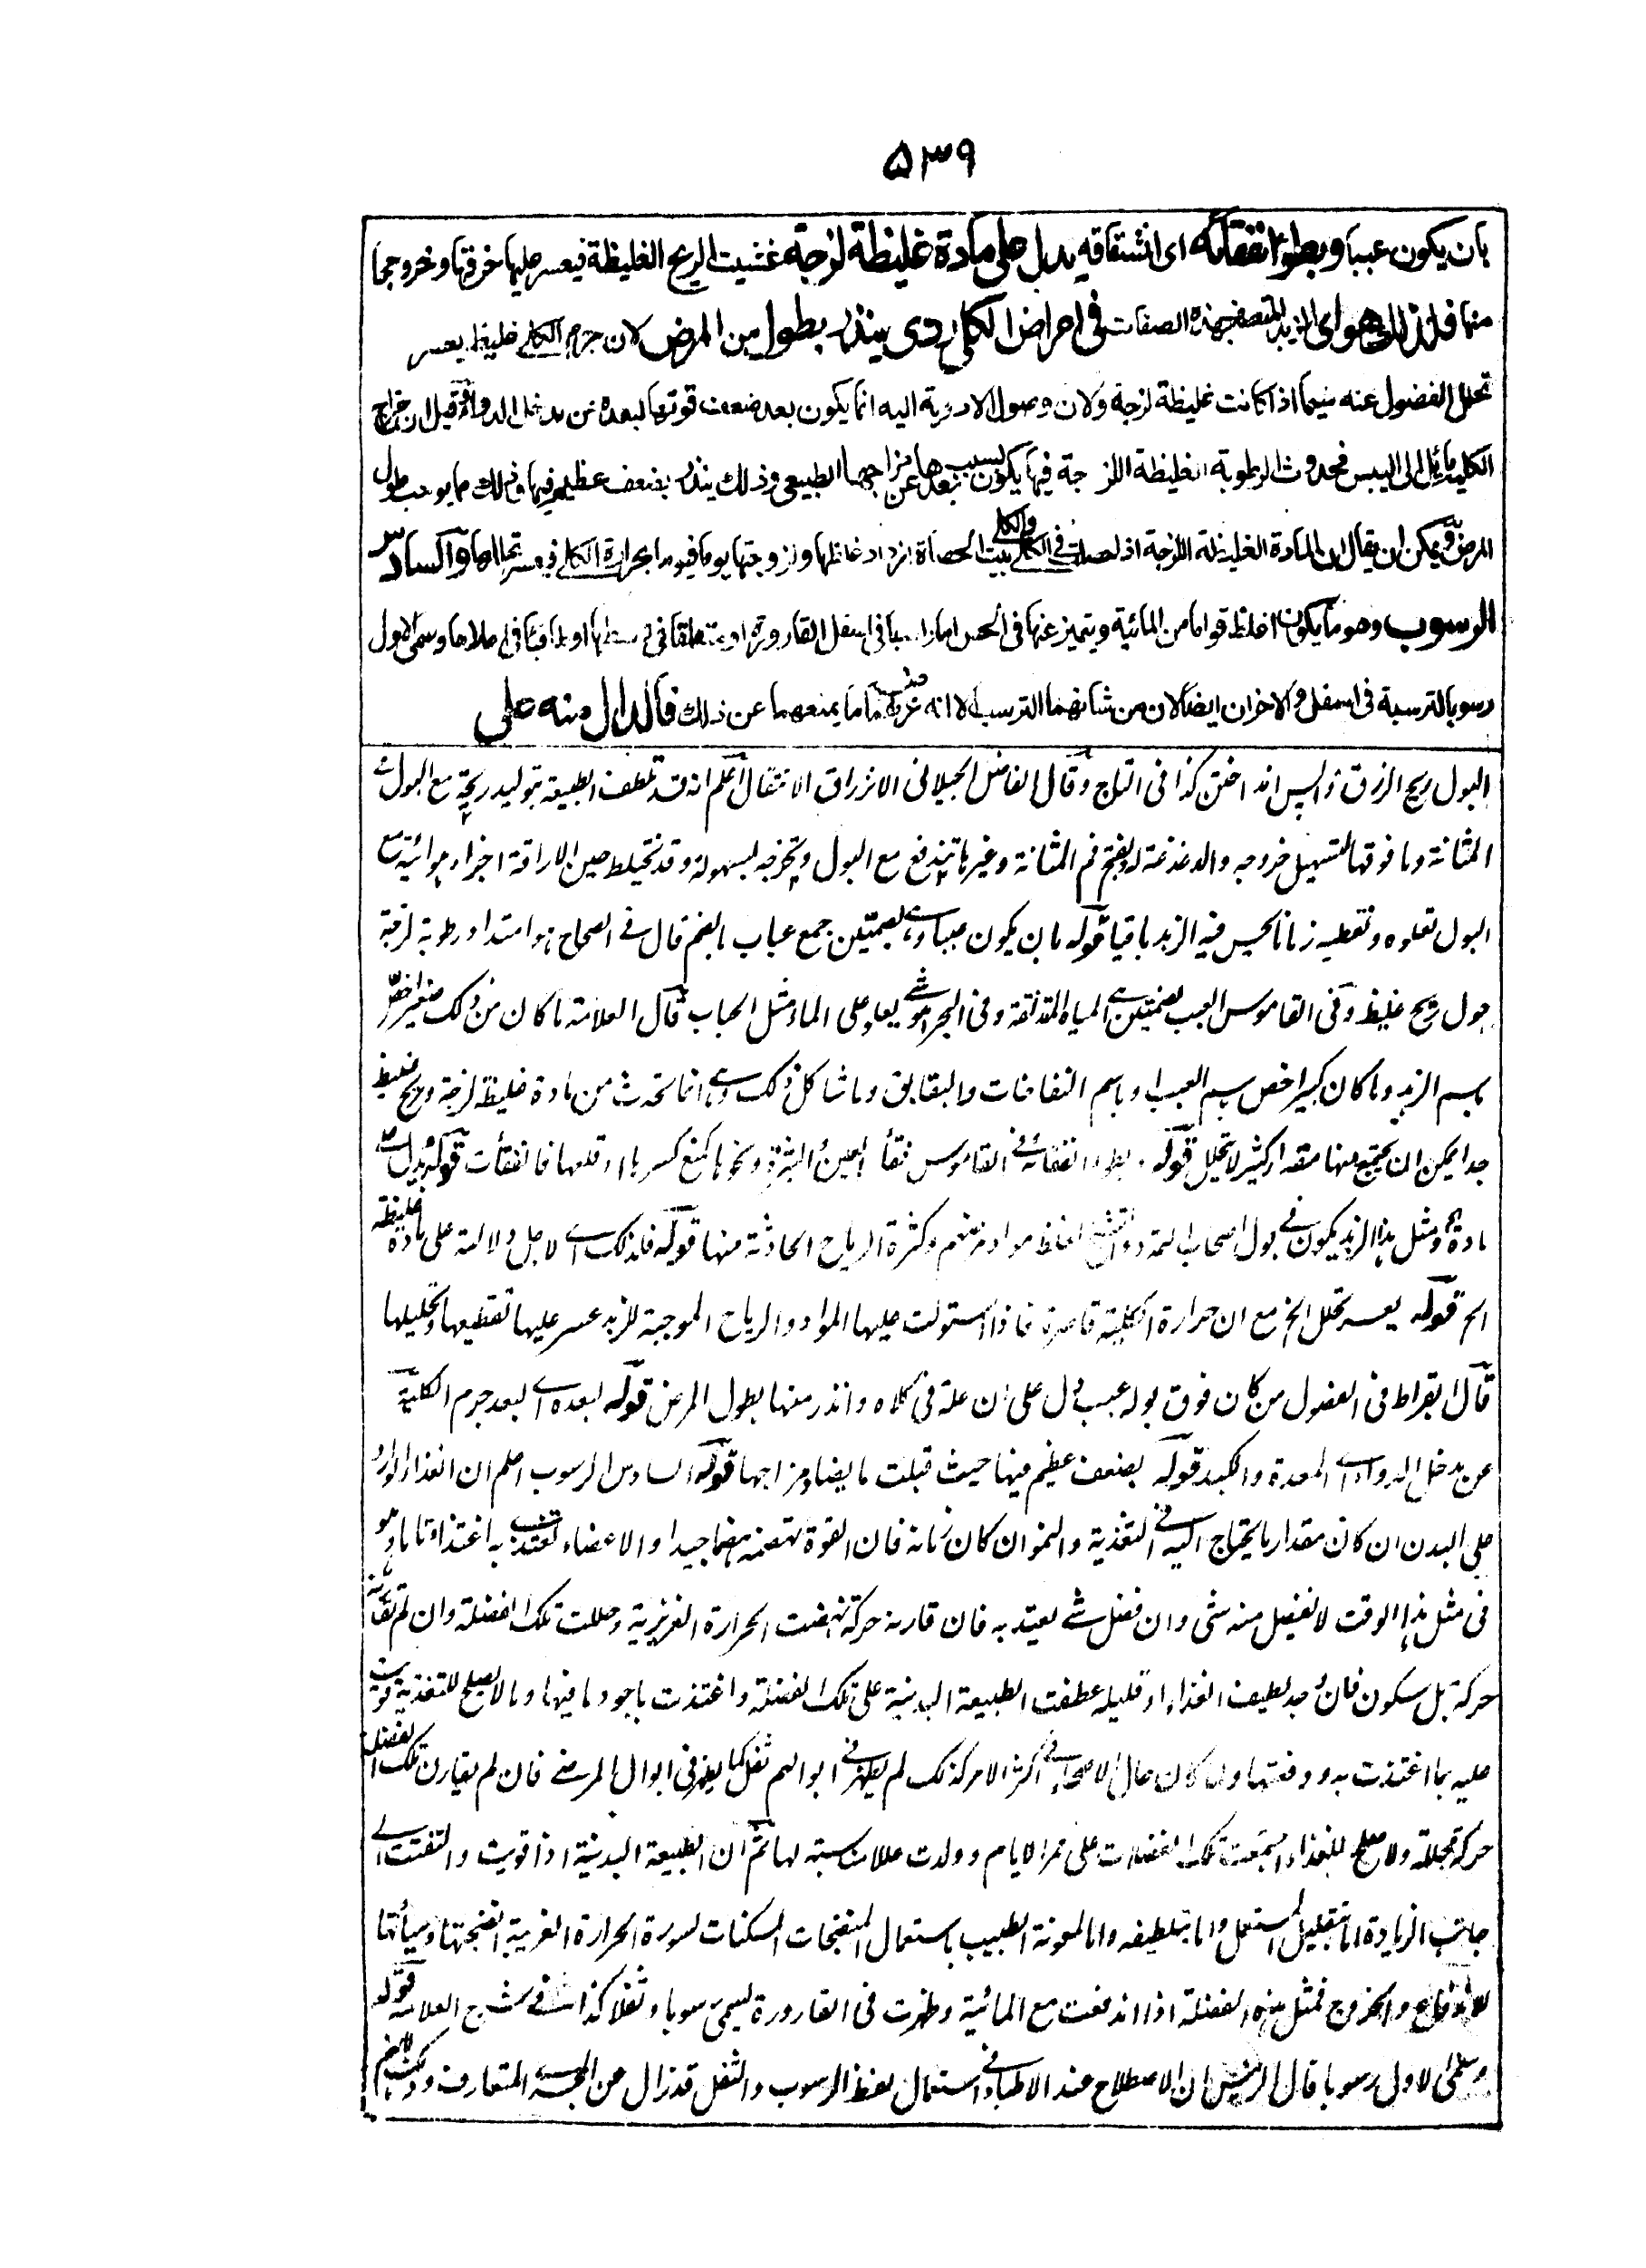 ۵۳۹
بان يكون عببا وبطؤ انفقائه اى انشقاقه يدل على مادة غليظة لزجة غشيت الريح الغليظة فيعسر عليها خرقها وخروجها
منها فلذلك هو اى الزبد المتصف بهذه الصفات فى امراض الكلى ردى ينذر بطول من المرض لان جرم الكلى غليظ يعسر
تحلل الفضول عنه سيما اذا كانت غليظة لزجة ولان وصول الادوية اليه انما يكون بعد ضعف قوتها لبعده عن مدخل الدواء وقيل ان مزاج
الكلية مائل الى اليبس فحدوث الرطوبة الغليظة اللزجة فيها يكون بسبب بعدها عن مزاجها الطبيعى وذلك ينذر بضعف عظيم فيها وذلك مما يوجب طول
المرض ويمكن ان يقال ان المادة الغليظة اللزجة اذا حصلت فى الكلى والكلى بيت الحصاة ازداد غلظها ولزوجتها يوما فيوما بحرارة الكلى فيعسر تحللها والسادس
الرسوب وهو ما يكون اغلظ قواما من المائية ويتميز عنها فى الحس اما راسبا فى اسفل القارورة او متعلقا فى وسطها او طافيا فى اعلاها وسمى الاول
رسوبا لترسبه فى اسفل والاخران ايضا لان من شانهما الترسب الا انه عرض لهما ما يمنعهما عن ذلك فالدال منه على
البول ريح الزرق الپس اند اختن كذا فى التاج وقال الفاضل الجيلانى الانزراق الانتقال اعلم انه قد تلطف الطبيعة بتوليد ريحية مع البول فى
المثانة وما فوقها لتسهيل خروجه والدغدغة له ولفتح فم المثانة وغيرها تندفع مع البول وتخرجه لسهولة وقد تختلط حين الاراقة اجزاء هوائية مع
البول تعلوه وتغطيه زمانا يحبس فيه الزبد باقيا قوله بان يكون عببا وهى بضمتين جمع عباب بالضم قال فى الصحاح هو امتداد رطوبة لزجة
حول ريح غليظ وفى القاموس العبب بضمتين هى المياه المتدفقة وفى البحر هو شئ يعلو على الماء مثل الحباب قال العلامة ما كان من ذلك صغيرا خص
باسم الزبد وما كان كبيرا خص باسم العبب او باسم النفاخات والبقابق وما شاكل ذلك وهى انما تحدث من مادة غليظة لزجة وريح غليظ
جدا يمكن ان يجتمع منها مقدار كثير لا يتحلل قوله وبطؤ انفقائه فى القاموس فقأ العين والبثرة ونحوها كمنع كسرها او قلعها فانفقأت قوله يدل على
مادة ومثل هذا الزبد يكون فى بول اصحاب التمدد والتشنج لغلظ مواد منهم وكثرة الرياح الحادثة منها قوله فلذلك اى لاجل دلالته على مادة غليظة
الخ قوله يعسر تحلل الخ مع ان حرارة الكلية قاصرة فاذا استولت عليها المواد والرياح الموجبة للزبد عسر عليها تقطيعها وتحليلها
قال ابقراط فى الفصول من كان فوق بوله عبب دل على ان علة فى كلاه وانذر منها بطول المرض قوله لبعده اى لبعد جرم الكلية
عن مدخل الدواء اى المعدة والكبد قوله بضعف عظيم فيها حيث قبلت ما يضاد مزاجها قوله السادس الرسوب اعلم ان الغذاء الوارد
على البدن ان كان مقدار ما يحتاج اليه فى التغذية والنمو ان كان زمانه فان القوة تهضمه هضما جيدا والاعضاء تغتذى به اغتذاء تاما وهو
فى مثل هذا الوقت لا يفضل منه شئ وان فضل شئ يعتد به فان قارنه حركة نهضت الحرارة الغريزية وحللت تلك الفضلة وان لم تقارنه
حركة بل سكون فان وجد لطيف الغذاء او قليله عطفت الطبيعة البدنية على تلك الفضلة واغتذت باجود ما فيها وما لا يصلح للتغذية قويت
عليه بما اغتذت به ودفعتها ولما كان حال الاصحاء فى اكثر الامر كذلك لم يظهر فى ابوالهم ثفل كما يظهر فى ابوال المرضى فان لم يقارن تلك الفضلة
حركة محللة ولا صلح للغذاء اجتمعت تلك الفضلات على ممر الايام وولدت عللا مناسبة لها ثم ان الطبيعة البدنية اذا قويت والتفتت الى
جانب الزيادة اما بتقليل المستعمل واما بتلطيفه واما لمعونة الطبيب باستعمال المنضجات المسكنات لسورة الحرارة الغريبة انضجتها وهيأتها
للاندفاع والخروج فمثل هذه الفضلة اذا اندفعت مع المائية وظهرت فى القارورة يسمى رسوبا وثفلا كذا فى شرح العلامة قوله
وسمى الاول رسوبا قال الشيخ ان الاصطلاح عند الاطباء فى استعمال لفظ الرسوب والثفل قد زال عن المجرى المتعارف وذلك لانهم